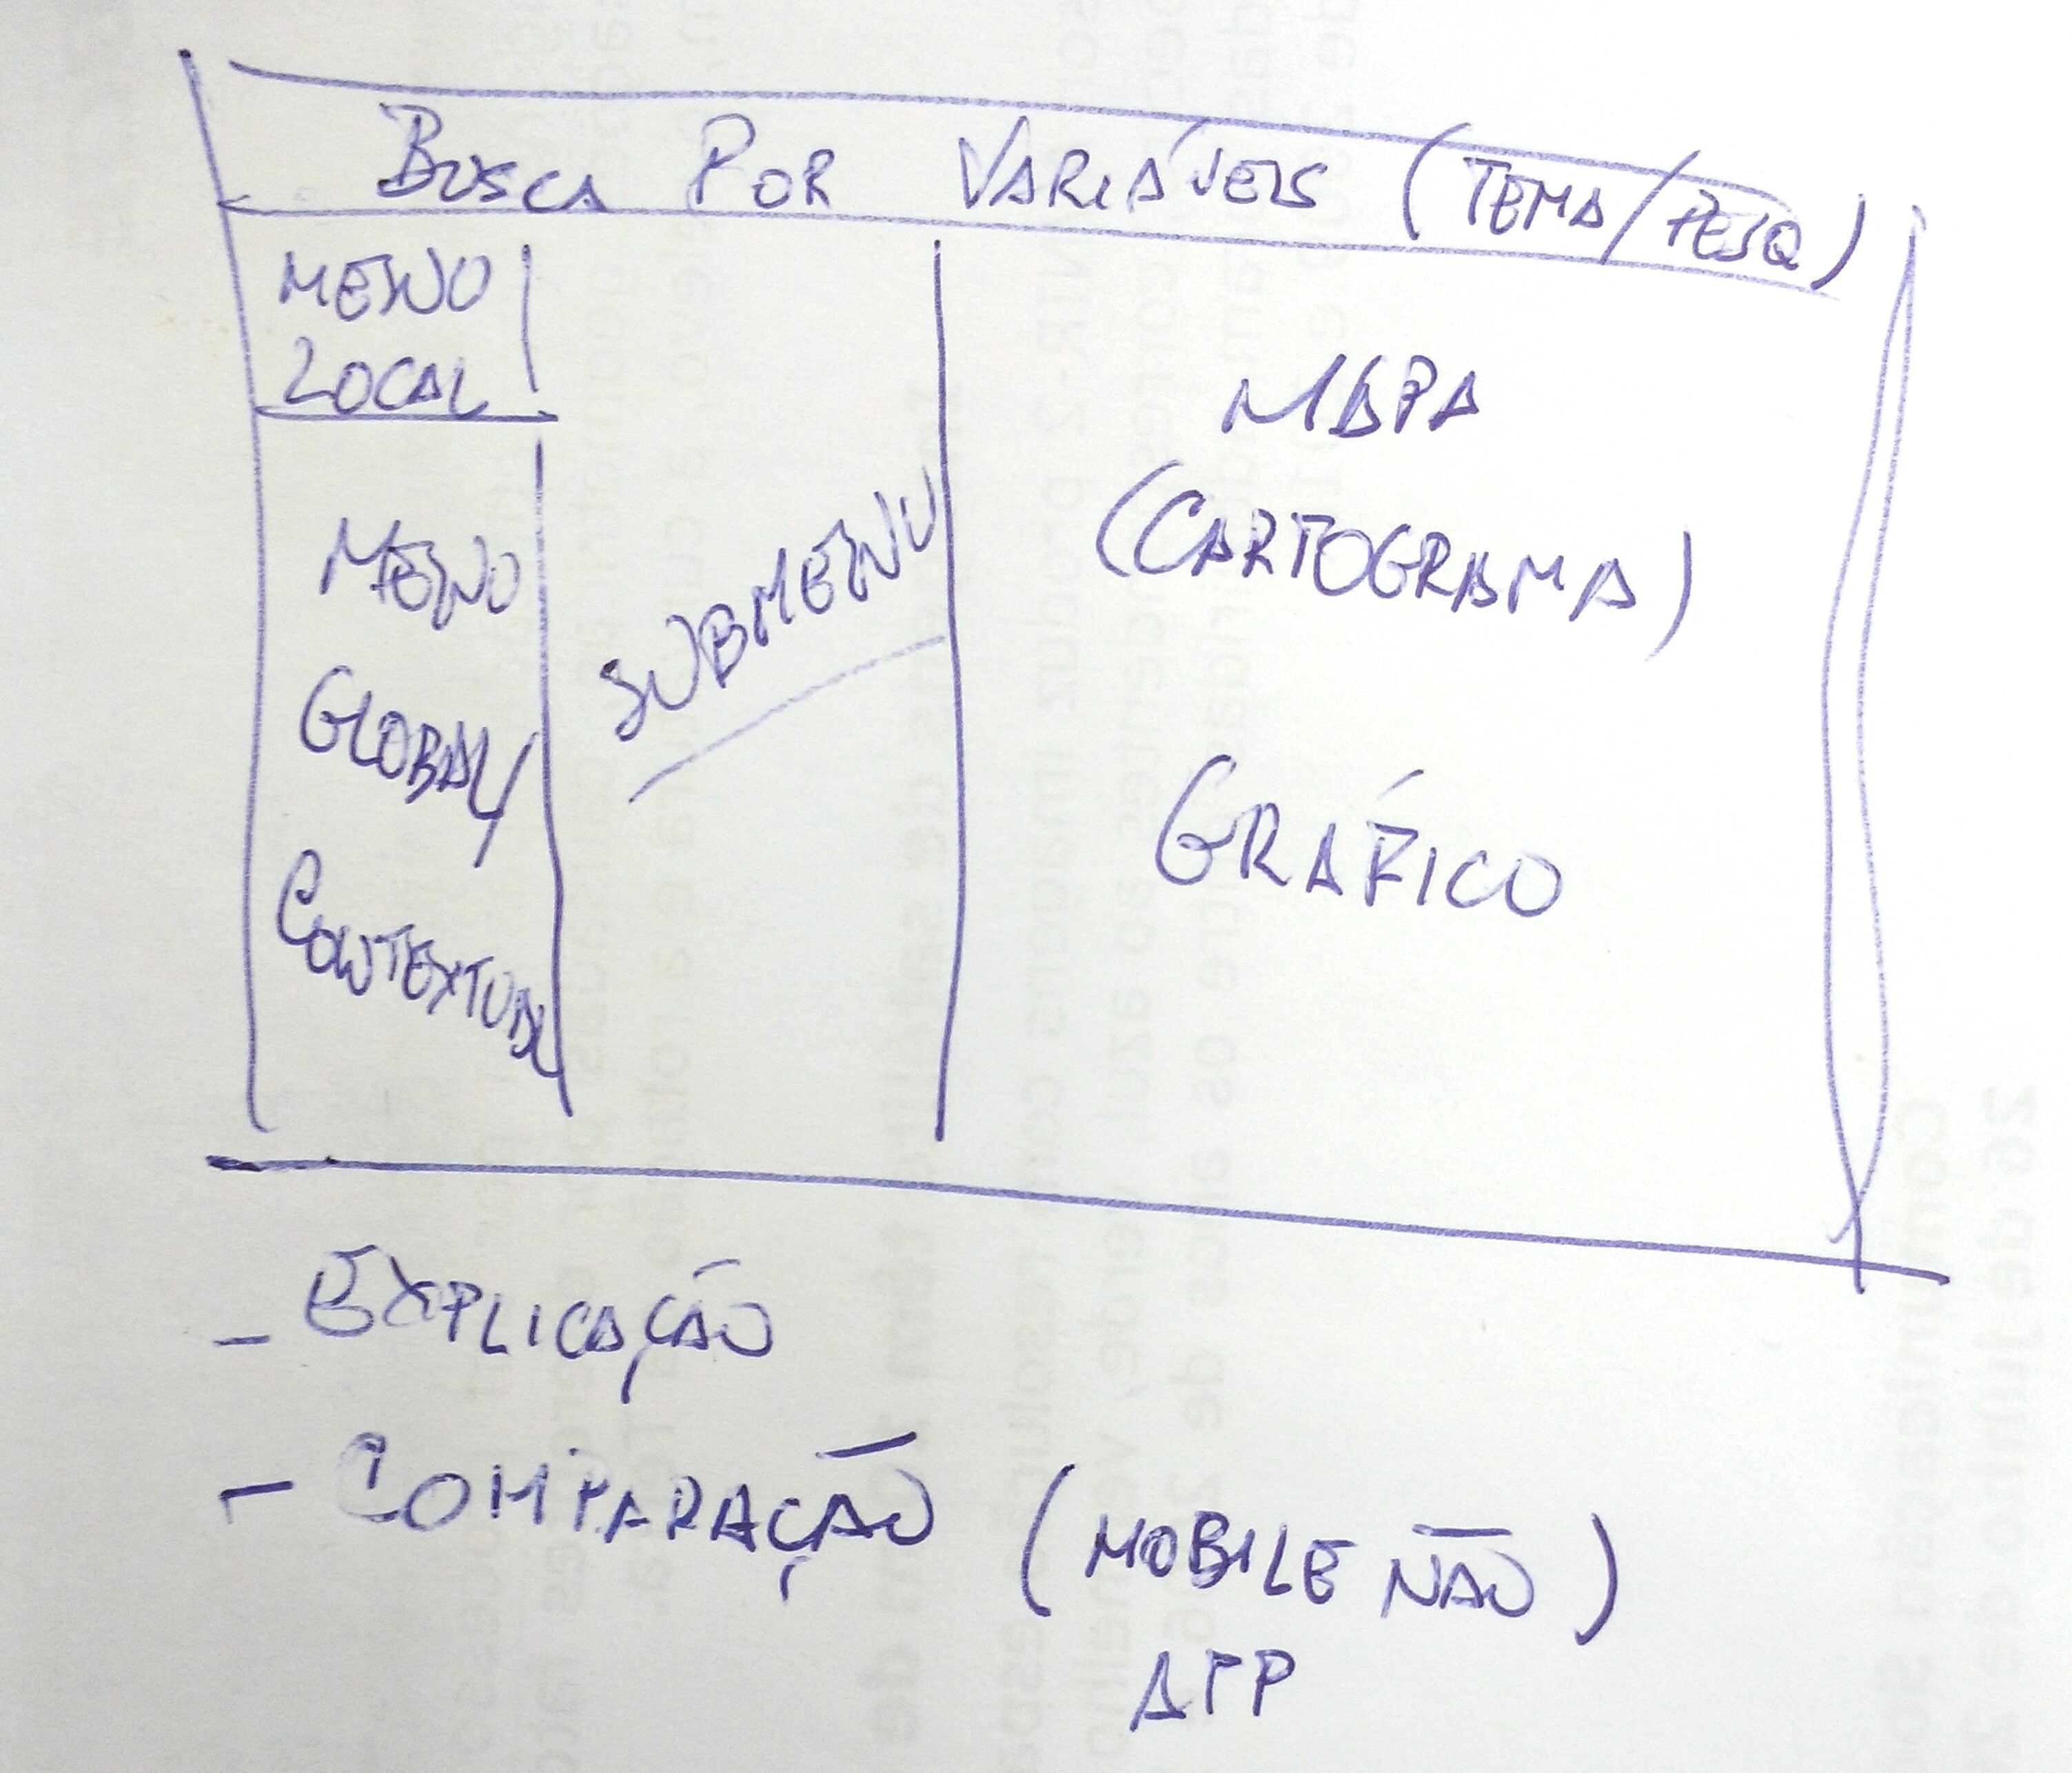 BUSCA POR VARIÁVEIS (TEMA/PESQ)
MENU
LOCAL
MENU
GLOBAL/
CONTEXTUAL
SUBMENU
MAPA
(CARTOGRAMA)
GRÁFICO
- EXPLICAÇÃO
- COMPARAÇÃO (MOBILE NÃO)
APP